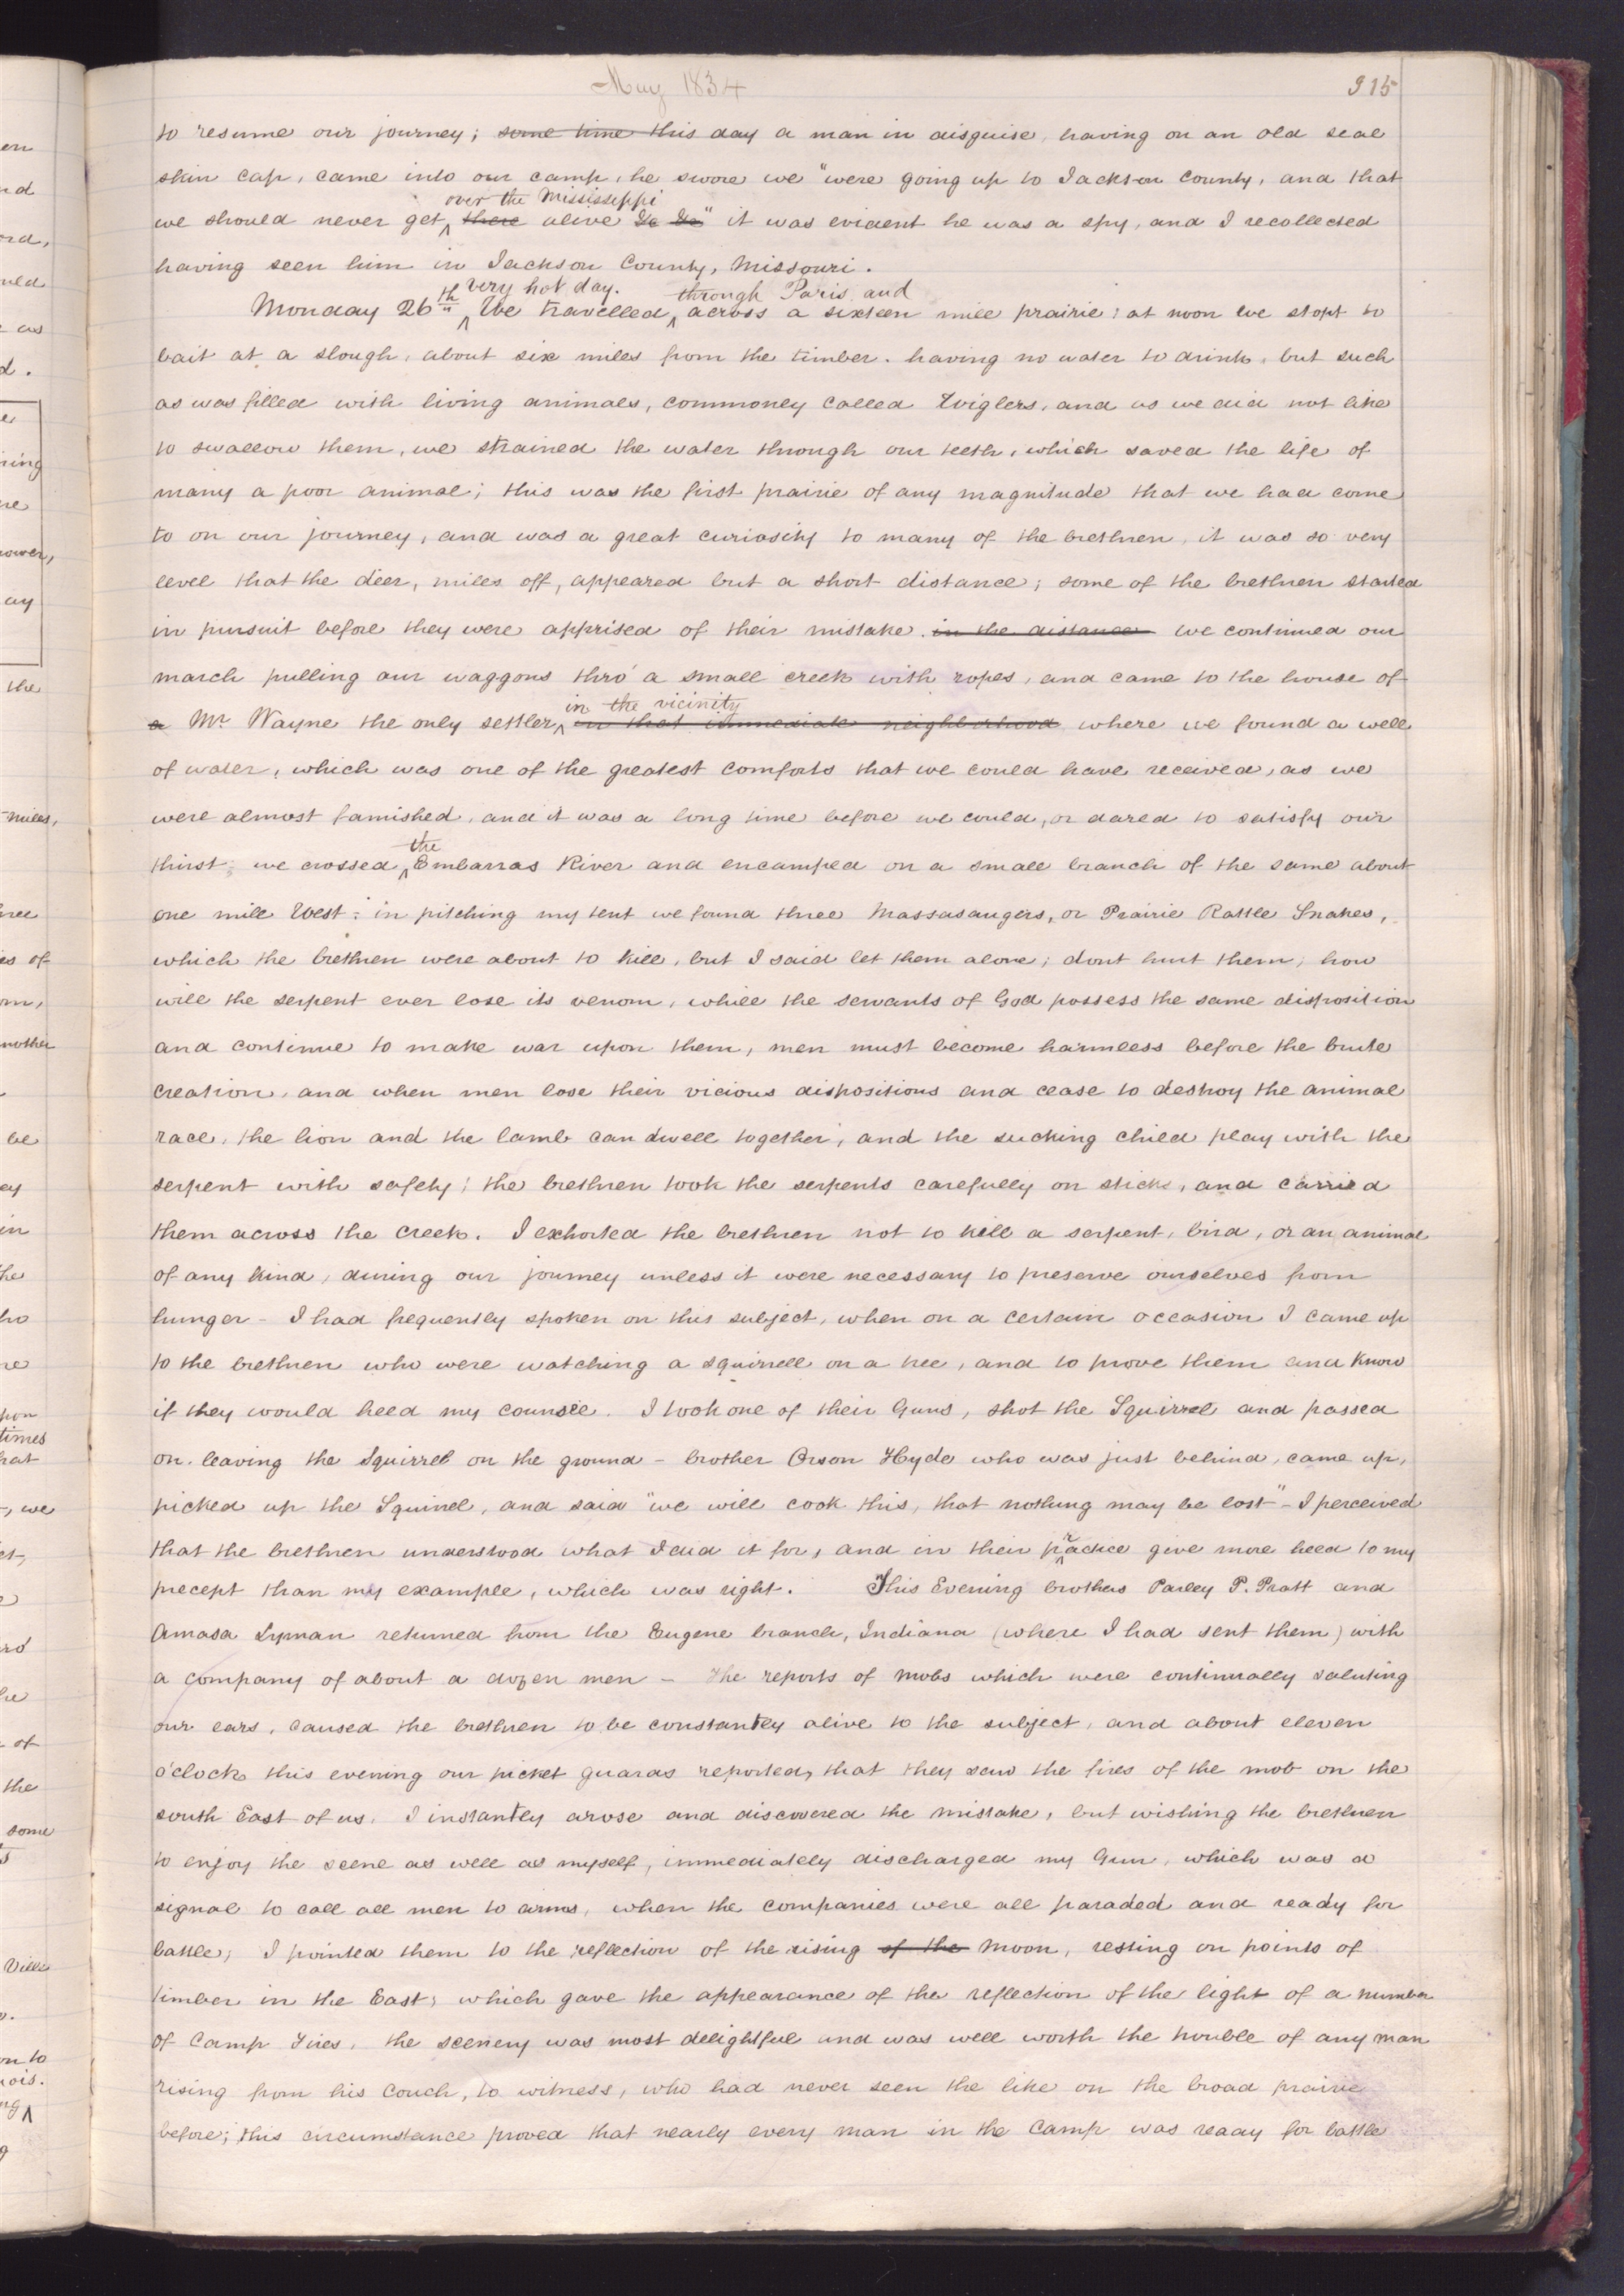 May 1834
915
to resume our journey; some time this day a man in disguise, having on an old seal
skin cap, came into our camp, he swore we "were going up to Jackson County, and that
over the Mississippi
we should never get there alive &c &c" it was evident he was a spy, and I recollected
having seen him in Jackson County, Missouri.
very hot day. through Paris and
Monday 26th We travelled across a sixteen mile prairie; at noon we stopt to
bait at a slough, about six miles from the timber. having no water to drink, but such
as was filled with living animals, commonly called Wiglers, and as we did not like
to swallow them, we strained the water through our teeth, which saved the life of
many a poor animal; this was the first prairie of any magnitude that we had come
to on our journey, and was a great curiosity to many of the brethren, it was so very
level that the deer, miles off, appeared but a short distance; some of the brethren started
in pursuit before they were apprised of their mistake. in the distance we continued our
march pulling our waggons thro' a small creek with ropes, and came to the house of
in the vicinity
a Mr Wayne the only settler in that immediate neighborhood where we found a well
of water, which was one of the greatest comforts that we could have received, as we
were almost famished, and it was a long time before we could, or dared to satisfy our
the
thirst; we crossed Embarras River and encamped on a small branch of the same about
one mile West; in pitching my tent we found three Massasaugers, or Prairie Rattle Snakes,
which the brethren were about to kill, but I said let them alone; dont hurt them; how
will the serpent ever lose its venom, while the servants of God possess the same disposition
and continue to make war upon them, men must become harmless before the brute
creation, and when men lose their vicious dispositions and cease to destroy the animal
race, the lion and the lamb can dwell together, and the sucking child play with the
serpent with safety; the brethren took the serpents carefully on sticks, and carried
them across the creek. I exhorted the brethren not to kill a serpent, bird, or an animal
of any kind, during our journey unless it were necessary to preserve ourselves from
hunger - I had frequently spoken on this subject, when on a certain occasion I came up
to the brethren who were watching a squirrell on a tree, and to prove them and know
if they would heed my counsel. I took one of their Guns, shot the Squirrel and passed
on. leaving the Squirrel on the ground - brother Orson Hyde who was just behind, came up,
picked up the Squirrel, and said "we will cook this, that nothing may be lost" - I perceived
that the brethren understood what I did it for, and in their practice give more heed to my
precept than my example, which was right. This Evening brothers Parley P. Pratt and
Amasa Lyman returned from the Eugene branch, Indiana (where I had sent them) with
a company of about a dozen men - the reports of mobs which were continually saluting
our ears, caused the brethren to be constantly alive to the subject, and about eleven
o'clock this evening our picket guards reported, that they saw the fires of the mob on the
south East of us. I instantly arose and discovered the mistake, but wishing the brethren
to enjoy the scene as well as myself, immediately discharged my Gun, which was a
signal to call all men to arms, when the companies were all paraded and ready for
battle; I pointed them to the reflection of the rising of the moon, resting on points of
timber in the East; which gave the appearance of the reflection of the light of a number
of Camp Fires. the scenery was most delightful and was well worth the trouble of any man
rising from his couch, to witness, who had never seen the like on the broad prairie
before; this circumstance proved that nearly every man in the Camp was ready for battle